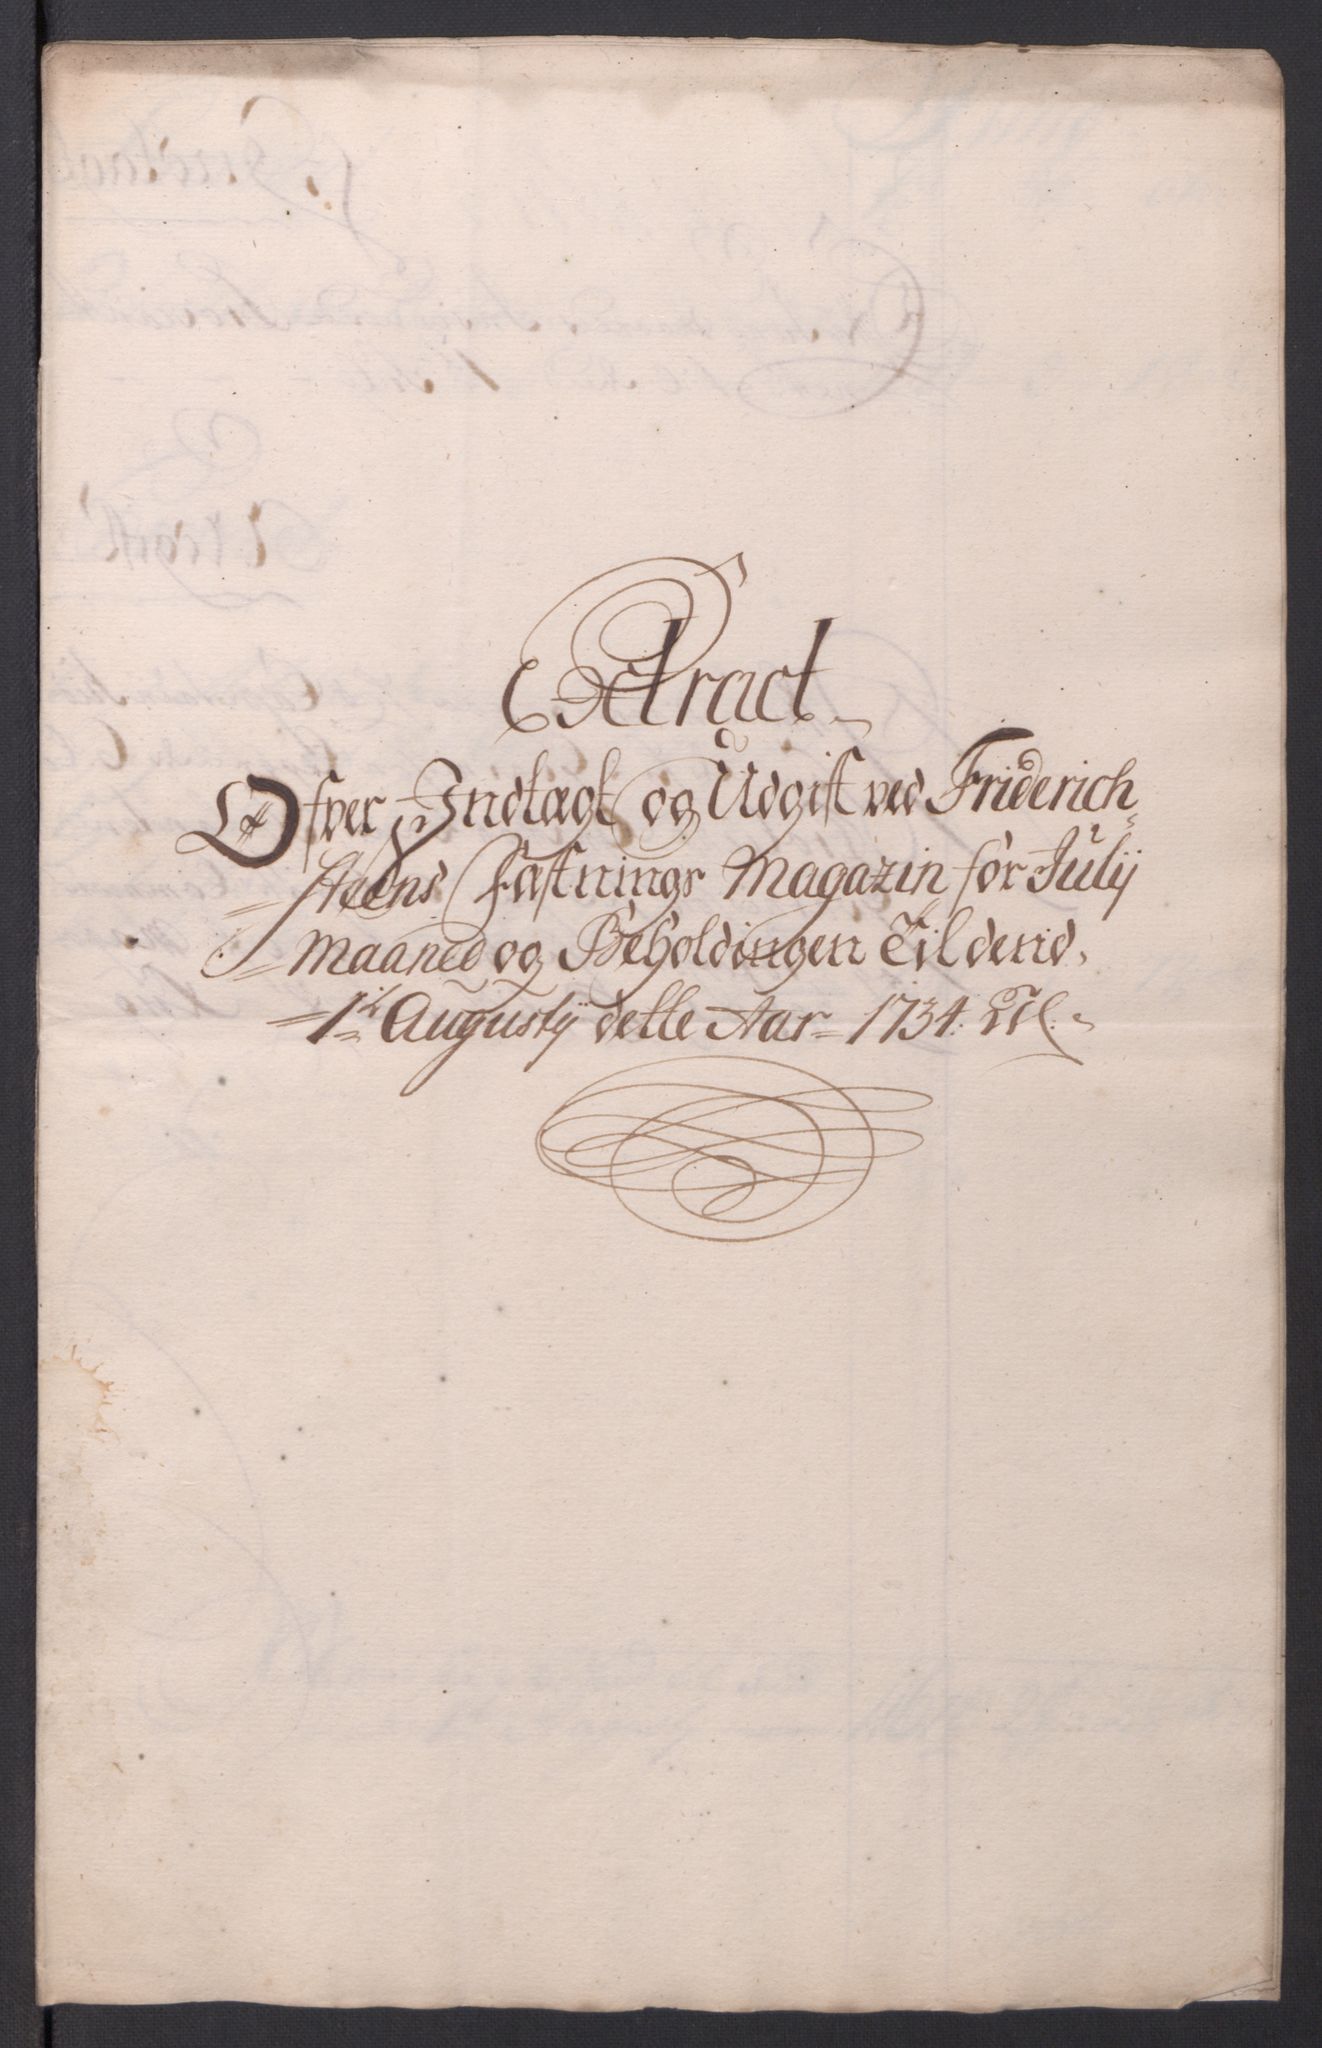 Extract
Ofver Indtægt og Udgift ved Friderich-
steens Fæstnings Magazin for Julij
Maaned og Beholdingen Til dend
1te Augustij dette Aar 1734.